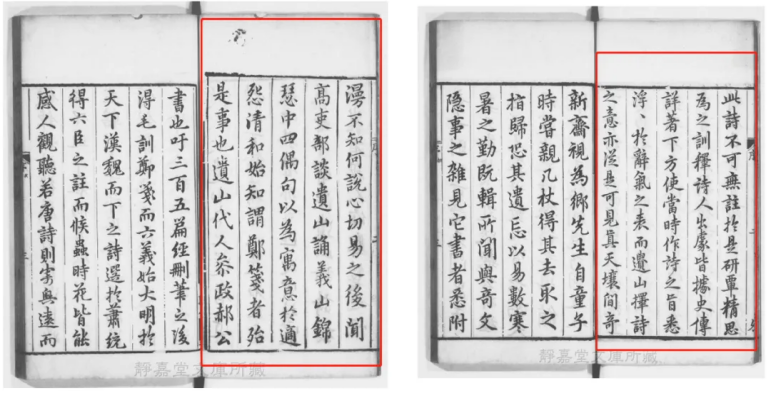 漫不知何說心切易之後聞
高吏部談遺山誦義山錦
瑟中四偶句以為寓意於適
怨清和始知謂鄭箋者殆
是事也遺山代人參政郝公
書也吁三百五篇經刪筆之後
得毛訓鄭箋而六義始大明於
天下漢魏而下之詩選於蕭統
得六臣之註而候蟲時花皆能
感人觀聽若唐詩則寄興遠而
靜嘉堂文庫所藏
此詩不可無註於是研覃精思
為之訓釋詩人出處皆據史傳
詳著下方使當時作詩之旨悉
浮於辭氣之表而遺山擇詩
之意亦從是可見真天壤間奇
新齋視為鄉先生自童子
時嘗親几杖得其去取之
指歸恐其遺忘以易數寒
暑之勤既輯所聞與奇文
隱事之雜見它書者悉附
靜嘉堂文庫所藏